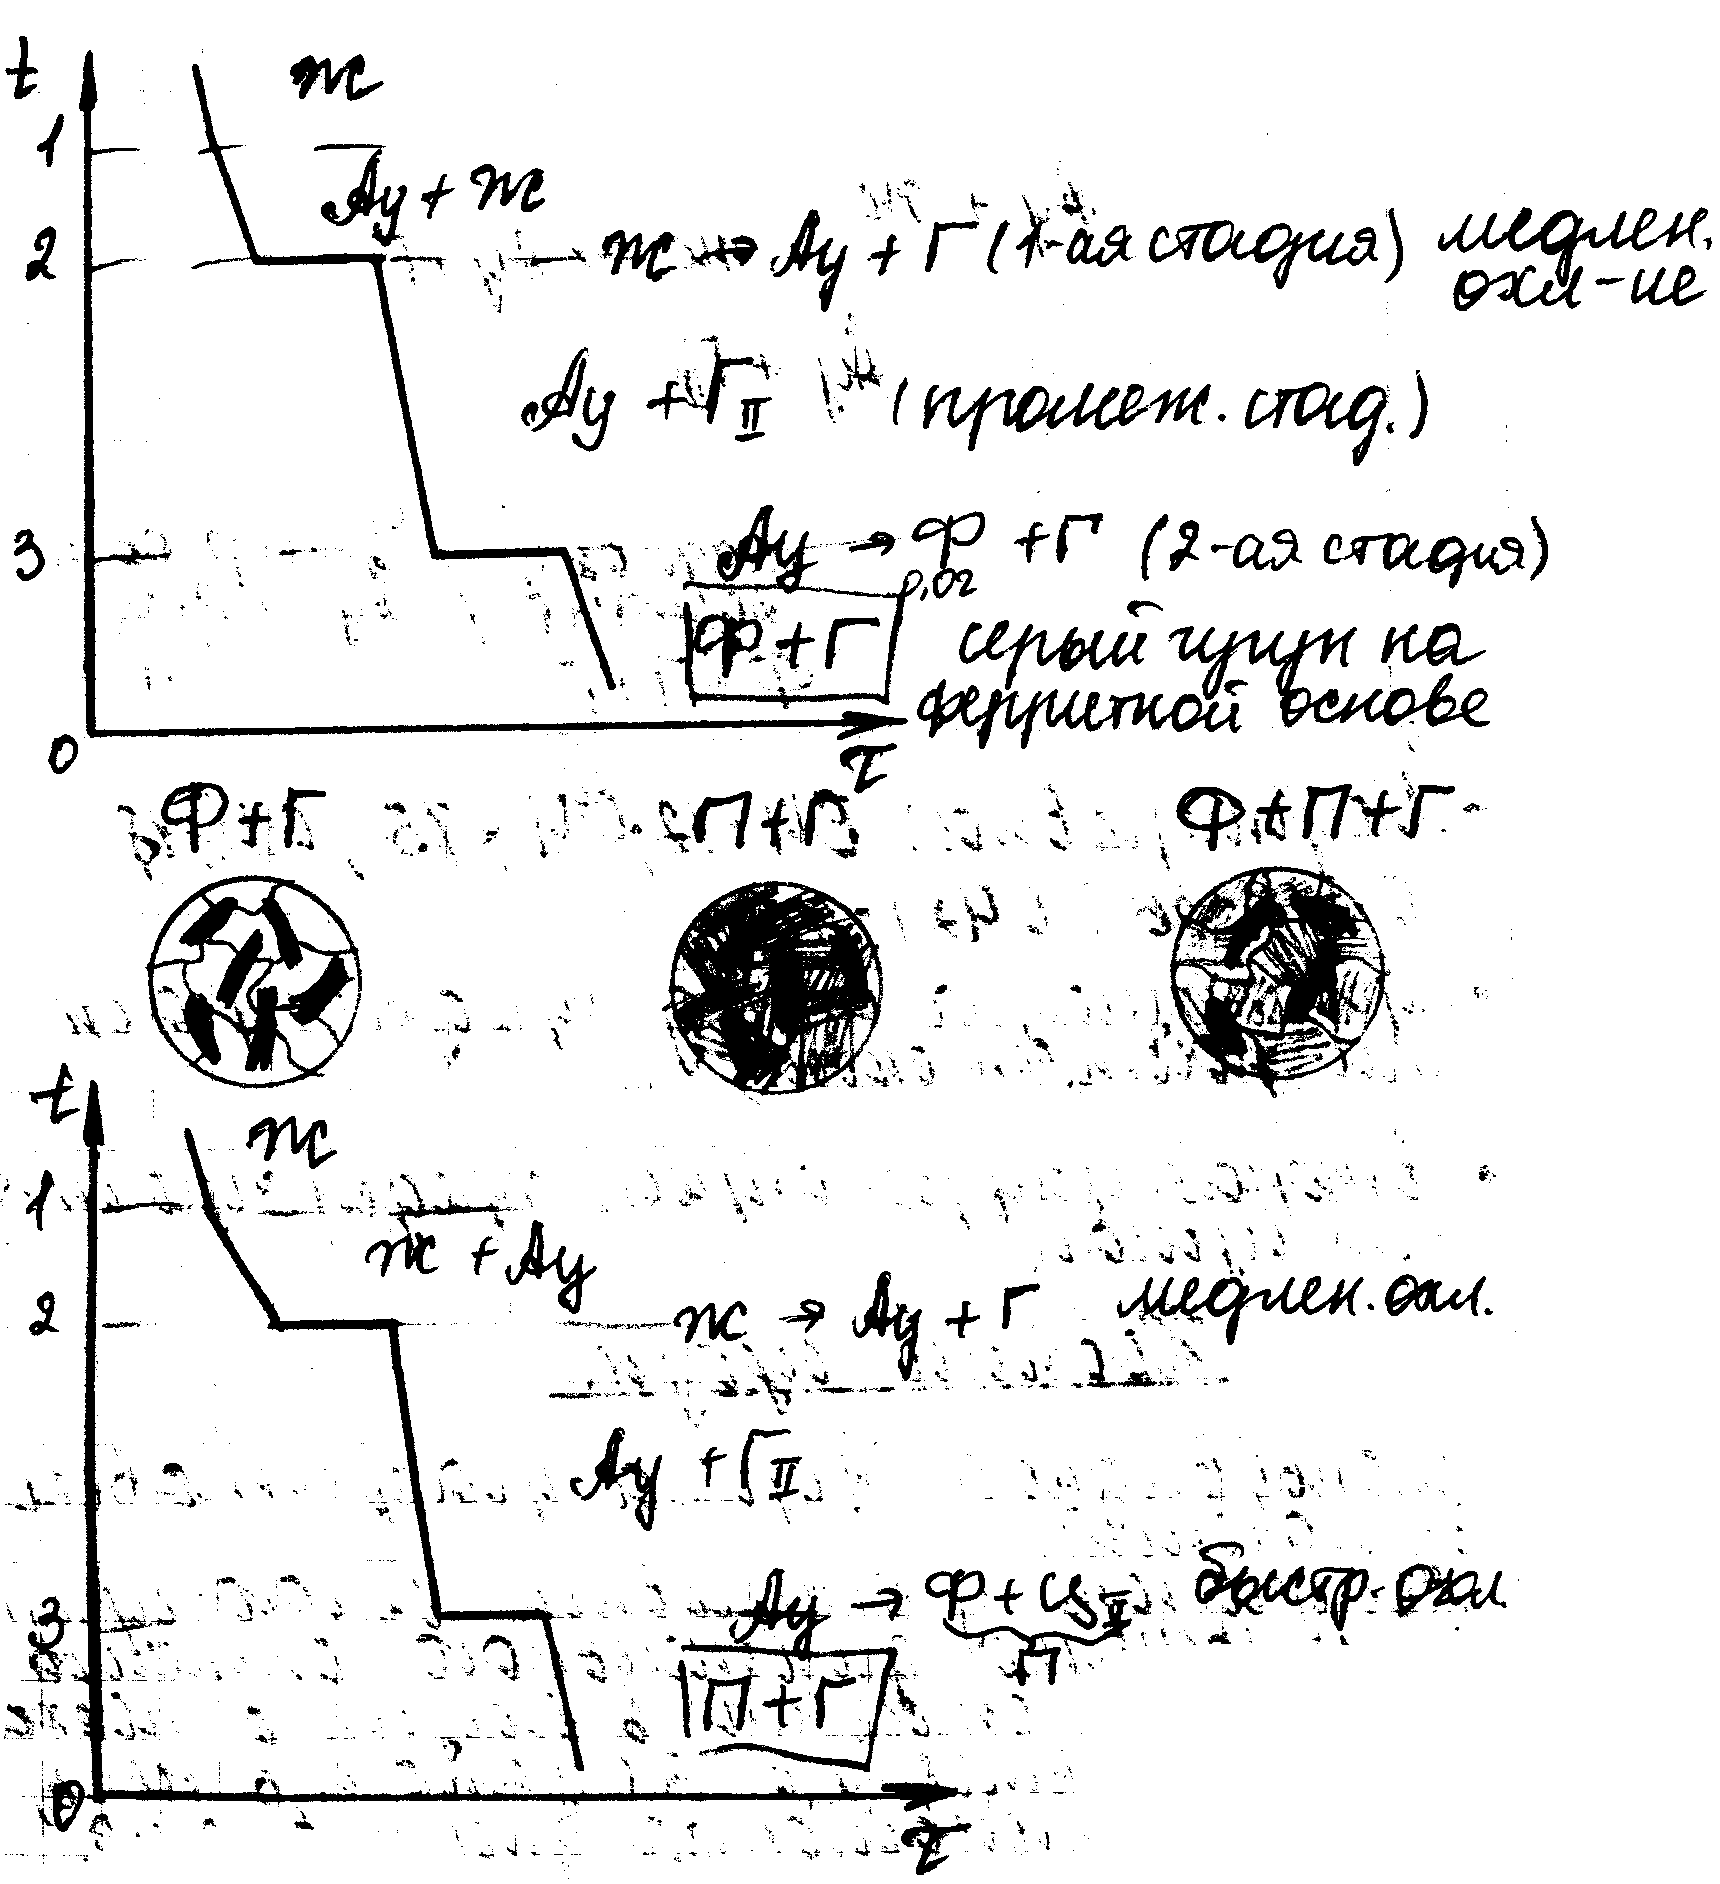 t
ж
1
Ау + ж
2
ж → Ау + Г (1-ая стадия) медлен.
охл-ие
Ау + Г II (промеж. стад.)
3
Ау → Ф 0,02 + Г (2-ая стадия)
Ф + Г серый чугун на
ферритной основе
0
τ
Ф + Г П + Г Ф + П + Г
t
ж
1
ж + Ау
2
ж → Ау + Г медлен. охл.
Ау + Г II
3
Ау → Ф + Ц II быстр. охл
П
П + Г
0
τ